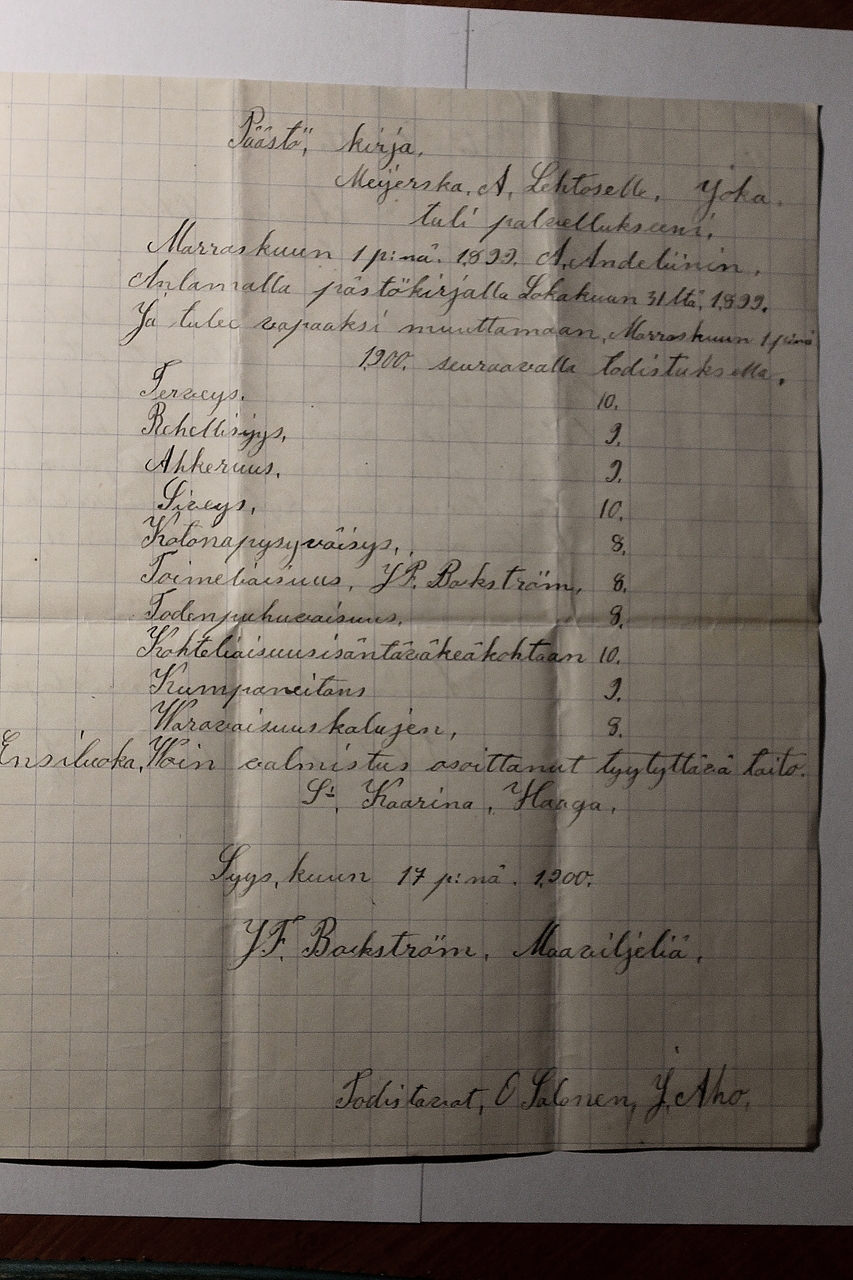 Päästö, kirja.
Meijerska, A, Lehtoselle, Joka.
tuli palvellukseeni,
Marraskuun 1 p:nä. 1899. A, Andelinin.
Anlamalla pästökirjalla Lokakuun 31ltä, 1899.
Ja tulee vapaaksi muuttamaan, Marraskuun 1 p:nä
1900. seuraavalla todistuksella.
Terveys. 10.
Rehellisyys, 9.
Ahkeruus, 9.
Siveys, 10.
Kotonapysyväisys, 8.
Toimeliaisuus, J F. Backström, 8.
Todenpuhuvaisuus. 8.
Kohteliaisuusisäntäväkeäkohtaan 10.
Kumpaneitans 9.
Waravaisuuskalujen, 8.
Ensiluoka, Woin valmistus osoittanut tyytyttävä taito.
St, Kaarina, Haaga,
Syys, kuun 17 p:nä. 1900.
J F. Backström, Maaviljeliä,
Todistavat, O Salonen, J, Aho,